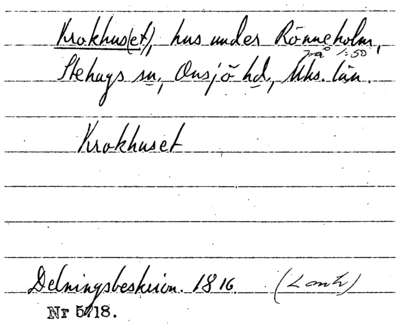 Krokhus(et), hus under Rönneholm,
på 1:50
Stehags sn, Onsjö hd, Mhs. län.
Krokhuset
Delningsbeskrivn. 1816. (Lantm)
Nr 5718.